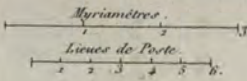 Myriamètres.
1 2 3
Lieues de Poste
1 2 3 4 5 6.